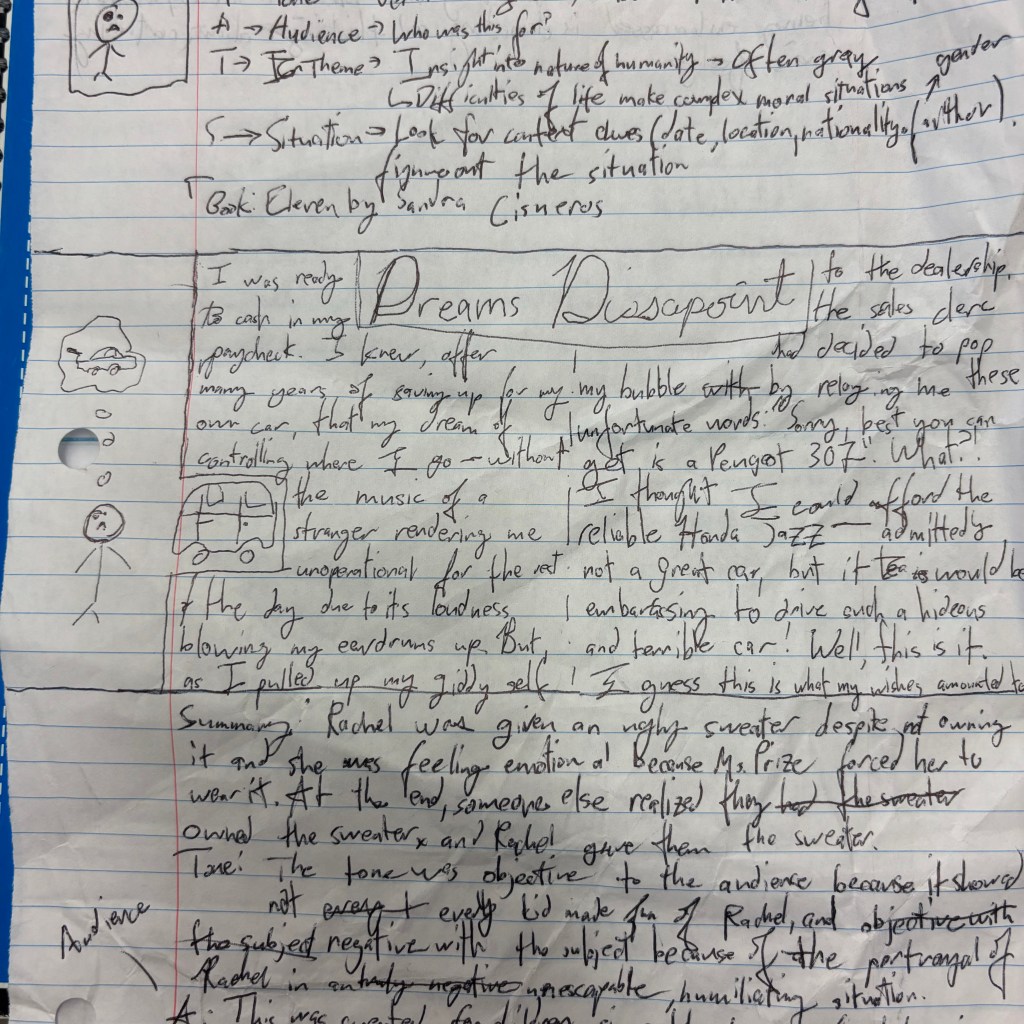 A → Audience → Who was this for?
T → Theme → Insight into nature of humanity → Often gray
↳ Difficulties of life make complex moral situations
gender
S → Situation → Look for context clues (date, location, nationality, author).
figure out the situation
Book: Eleven by Sandra Cisneros
Dreams Dissapoint
I was ready
to cash in my
paycheck. I knew, after
many years of saving up for my
own car, that my dream of
controlling where I go – without
the music of a
stranger rendering me
unoperational for the rest
of the day due to its loudness
blowing my eardrums up. But,
as I pulled up my giddy self
to the dealership,
the sales clerc
had decided to pop
my bubble with by relaying me these
unfortunate words: "Sorry, best you can
get, is a Peugeot 307". What?!
I thought I could afford the
reliable Honda Jazz — admittedly
not a great car, but it would be
embarassing to drive such a hideous
and terrible car! Well, this is it.
I guess this is what my wishes amounted to
Summary: Rachel was given an ugly sweater despite not owning
it and she was feeling emotional because Ms. Prize forced her to
wear it. At the end, someone else realized they had the sweater
owned the sweater, and Rachel gave them the sweater.
Tone: The tone was objective to the audience because it showed
not every kid made fun of Rachel, and objective with
the subject negative with the subject because of the portrayal of
Rachel in an truly negative unescapable, humiliating situation.
Audience
A: This was created for children